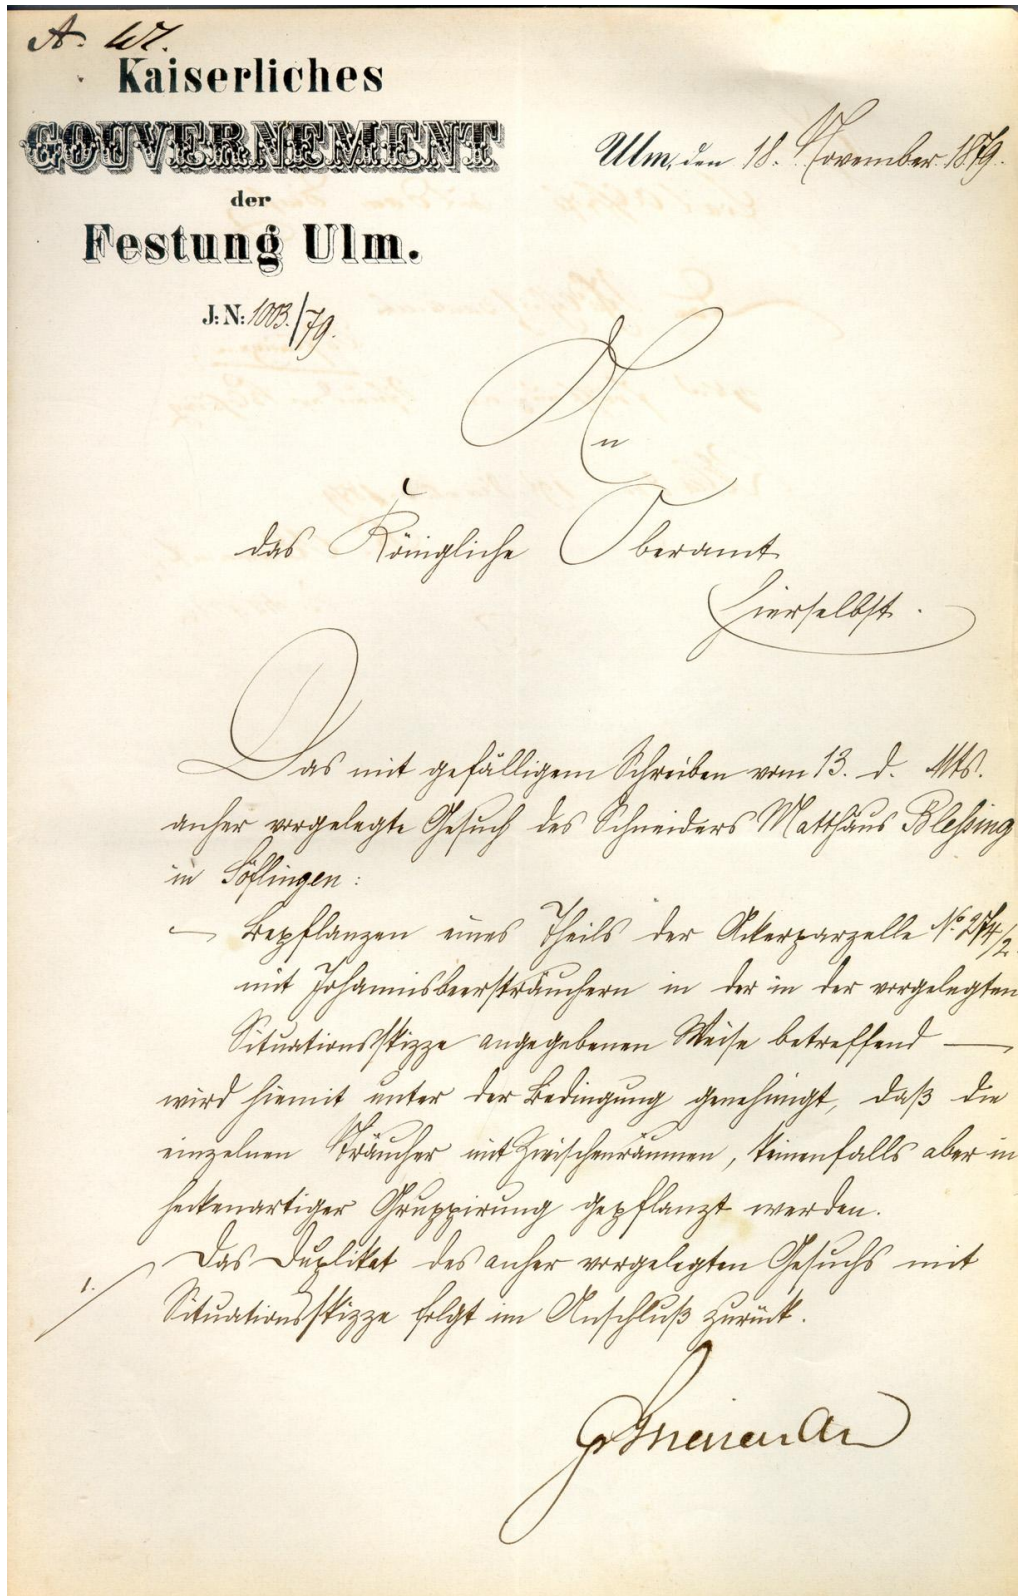 Kaiserliches
GOUVERNEMENT
der
Festung Ulm.
J: N: 1003./79.
Ulm, den 18. November 1879.
An
das Königliche Oberamt
hierselbst.
Das mit gefälligem Schreiben vom 13. d. Mts.
anher vorgelegte Gesuch des Schneiders Matthäus Blessing
in Söflingen:
— Bepflanzen eines Theils der Ackerparzelle No 274/2.
mit Johannisbeersträuchern in der in der vorgelegten
Situationsskizze angegebenen Weise betreffend —
wird hiemit unter der Bedingung genehmigt, daß die
einzelnen Sträucher mit Zwischenräumen, keinenfalls aber in
heckenartiger Gruppirung gepflanzt werden.
1./ Das Duplikat des anher vorgelegten Gesuchs mit
Situationsskizze folgt im Anschluß zurück.